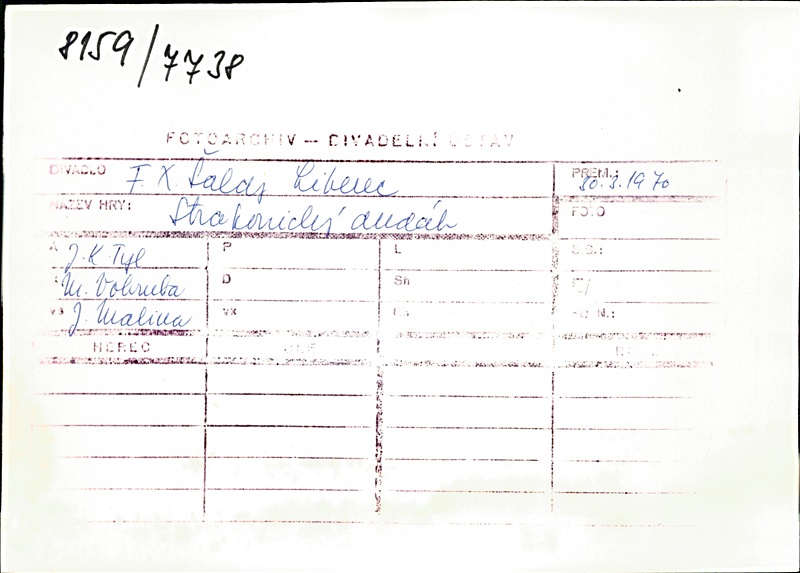 8159/7738
FOTOARCHIV — DIVADELNÍ ÚSTAV
DIVADLO F. X. Šaldy Liberec PREM.: 30.3.1970
NÁZEV HRY: Strakonický dudák FOTO
A J. K. Tyl P L
M. Vohruba D Sh
VS J. Malina VK N.:
HEREC